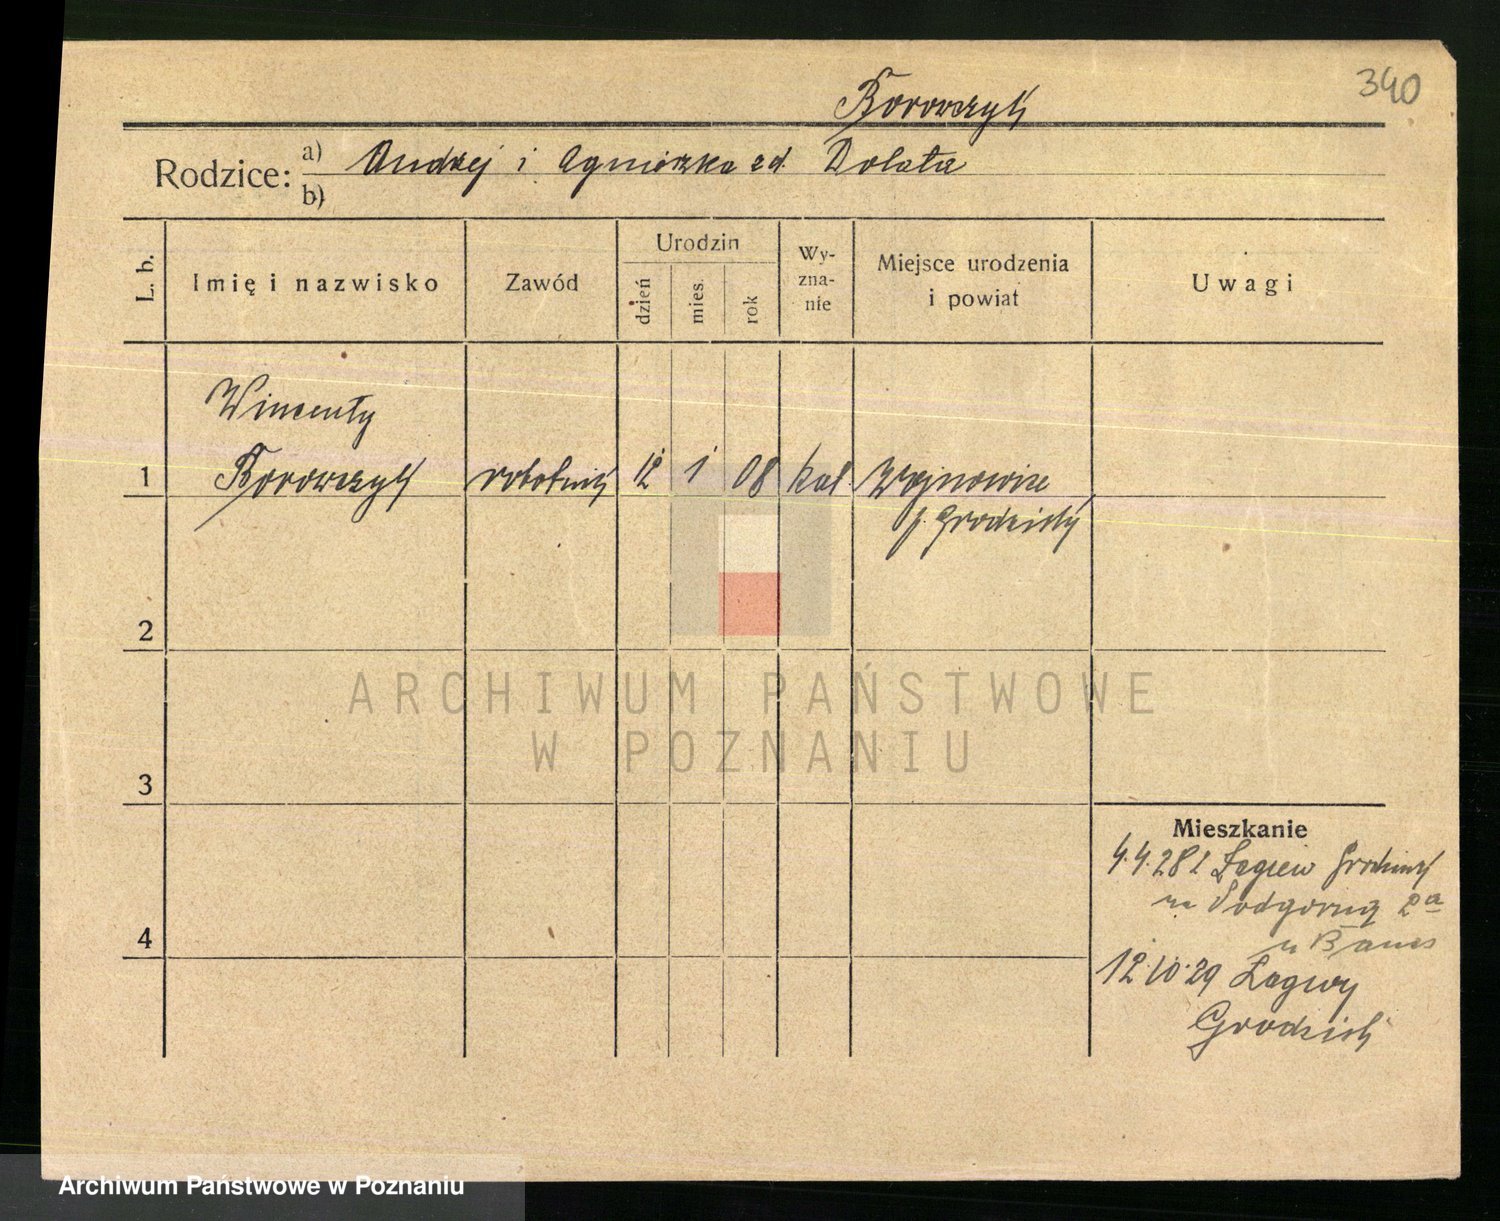 340
Borowczyk
Rodzice: a) Andrzej i Agnieszka zd. Dolata
b)
L. b.
Imię i nazwisko
Zawód
Urodzin
dzień
mies.
rok
Wy-
zna-
nie
Miejsce urodzenia
i powiat
Uwagi
Wincenty
1 Borowczyk robotnik 12 1 08 kat. Wojnowice
p. Grodzisk
2
3
4
ARCHIWUM PAŃSTWOWE
W POZNANIU
Mieszkanie
4.4.28 Grodzisk
na Podgórną 2a
u
12.10.29 Łagwy
Grodzisk
Archiwum Państwowe w Poznaniu